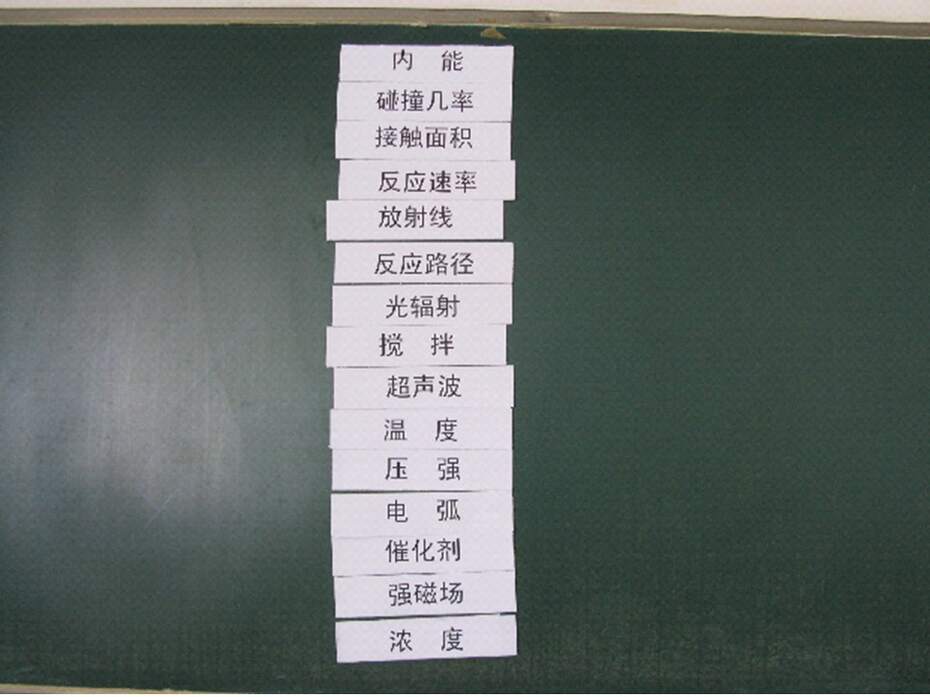 内 能
碰撞几率
接触面积
反应速率
放射线
反应路径
光辐射
搅 拌
超声波
温 度
压 强
电 弧
催化剂
强磁场
浓 度